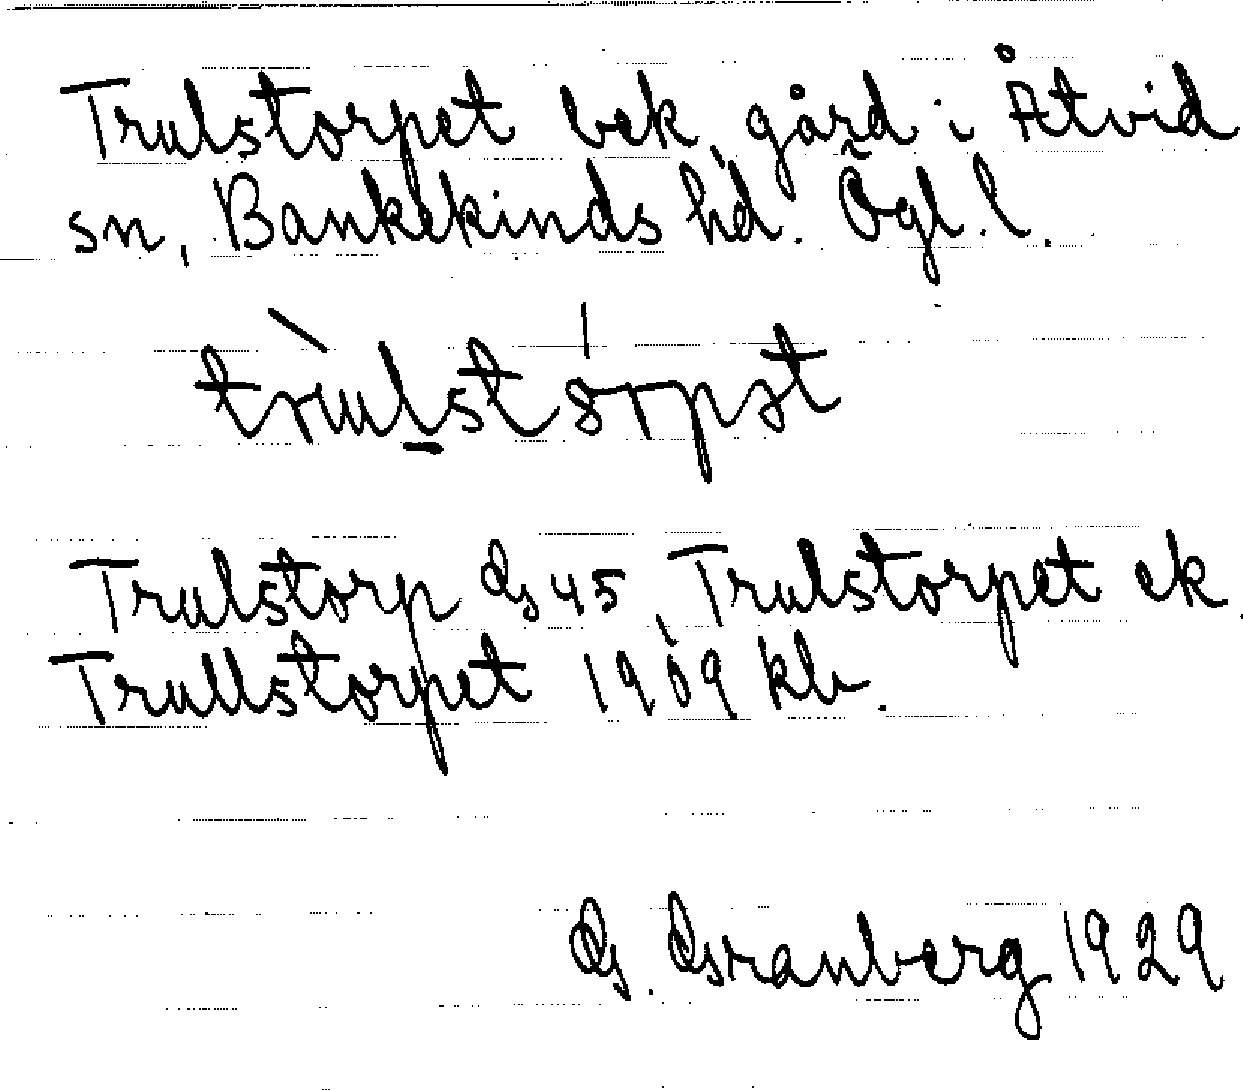 Trulstorpet bek, gård i Åtvid
sn, Bankekinds hd. Ögl. l.
Trulstorp Gs 45, Trulstorpet ek.
Trullstorpet 1909 kb.
G. Granberg 1929